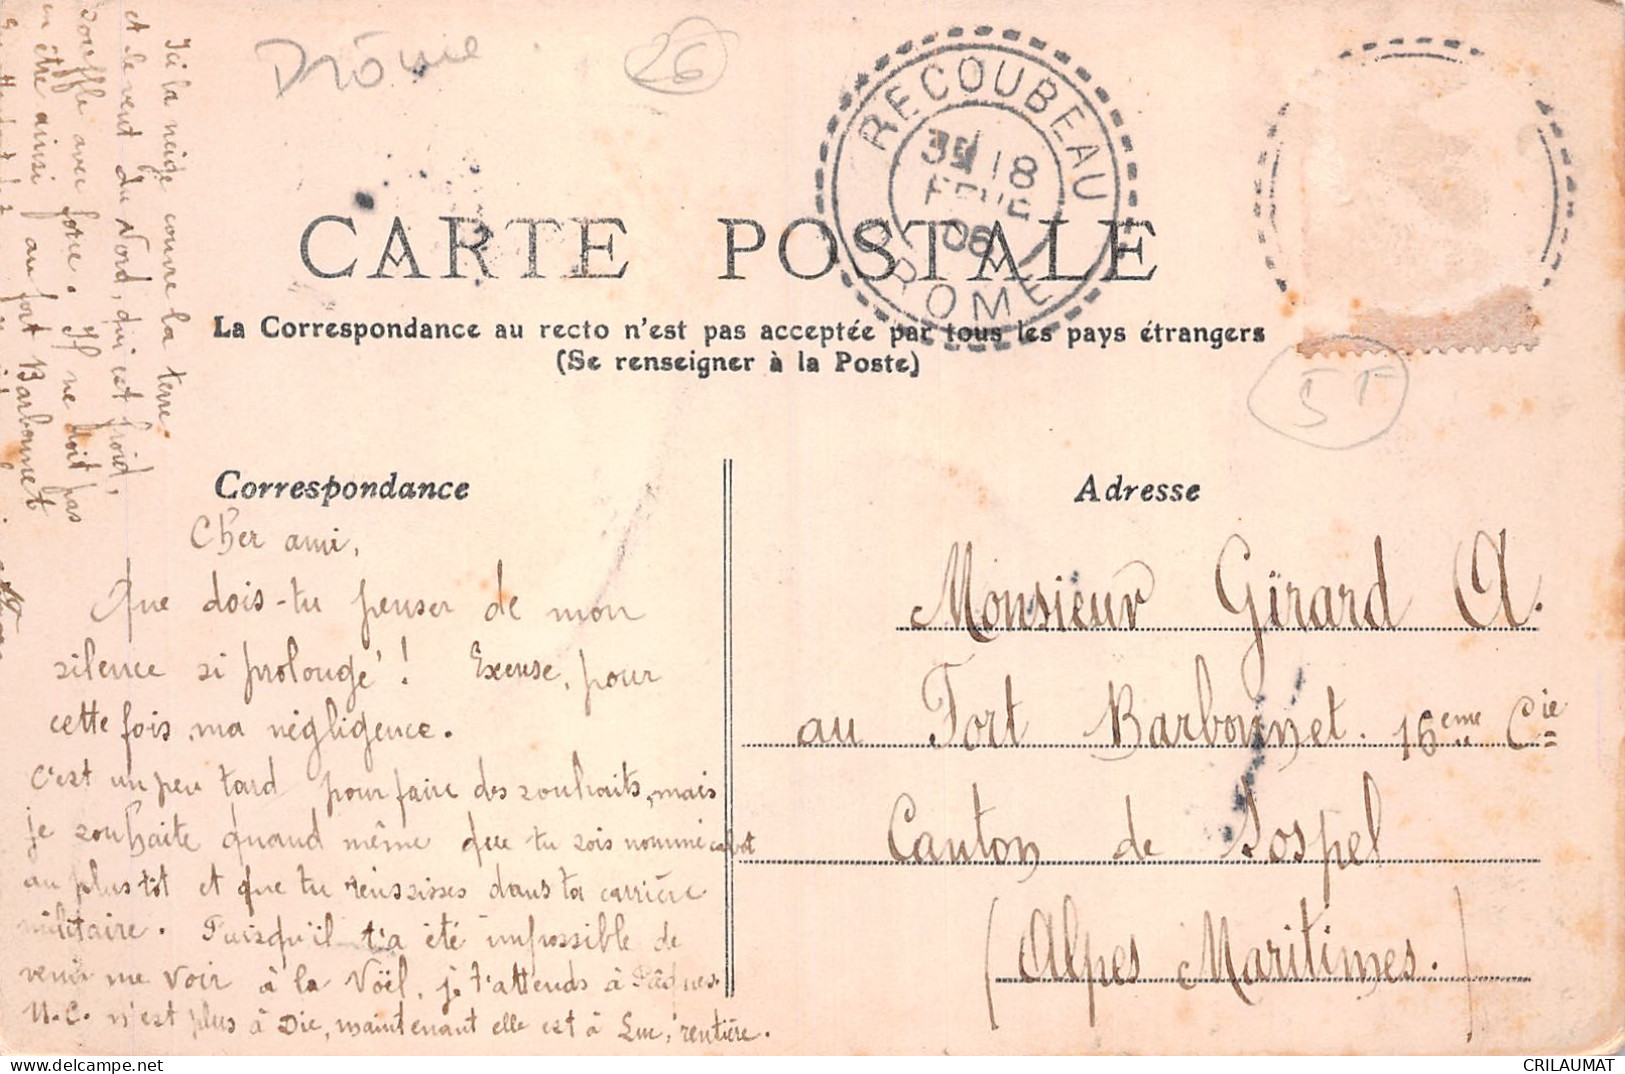 Drôme
26
RECOUBEAU
3E 18
FEVR
06
DROME
CARTE POSTALE
La Correspondance au recto n'est pas acceptée par tous les pays étrangers
(Se renseigner à la Poste)
5F
Correspondance
Adresse
Cher ami,
Que dois-tu penser de mon
silence si prolongé ! Excuse, pour
cette fois, ma négligence.
C'est un peu tard pour faire des souhaits, mais
je souhaite quand même que tu sois nommé cabot
au plus tôt et que tu réussisses dans ta carrière
militaire. Puisqu'il t'a été impossible de
venir me voir à la Noël, je t'attends à Pâques
M.C. n'est plus à Die, maintenant elle est à Luc, rentière.
Ici la neige couvre la terre.
Et le vent du Nord, qui est froid,
souffle avec force. Il ne doit pas
en être ainsi au fort Barbonnet
Monsieur Girard A.
au Fort Barbonnet. 16eme Cie
Canton de Sospel
(Alpes Maritimes.)
CRILAUMAT